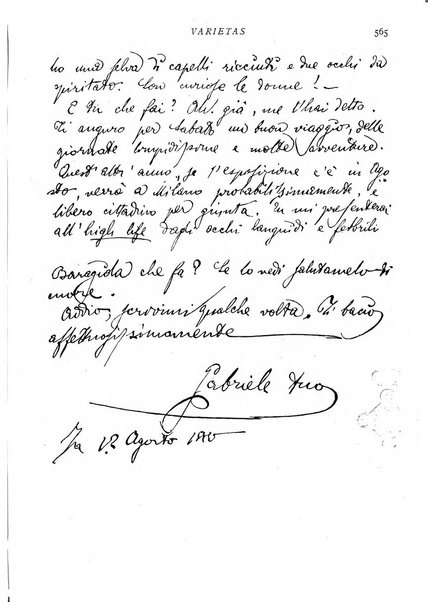 VARIETAS 565
ho una selva di capelli ricciuti e due occhi da
spiritato. Son curiose le donne! —
E tu che fai? Oh! già, me l'hai detto.
Ti auguro per sabato un buon viaggio, delle
giornate limpidissime e molte avventure.
Quest'altr'anno, se l'esposizione c'è in Ago
sto, verrò a Milano probabilissimamente, e
libero cittadino per giunta. Tu mi presenterai
all'high life dagli occhi languidi e febbrili
Baragiola che fa? Se lo vedi salutamelo di
molto.
Addio, scrivimi qualche volta. Ti bacio
affettuosissimamente
Gabriele tuo
12 Agosto